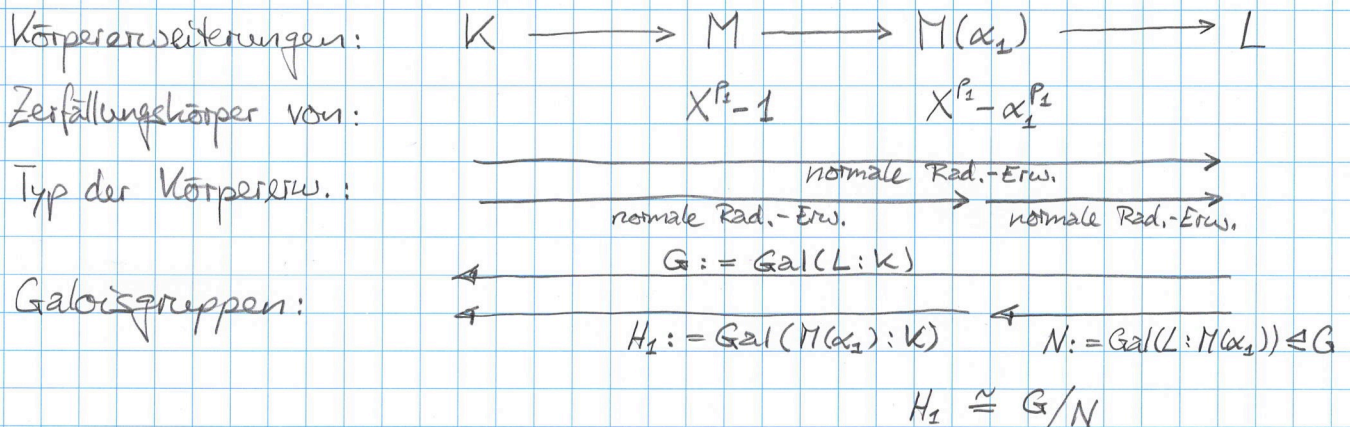 Körpererweiterungen: K → M → M(α₁) → L
Zerfällungskörper von: X^p₁ - 1 X^p₁ - α₁^p₁
normale Rad.-Erw.
Typ der Körpererw.:
normale Rad.-Erw. normale Rad.-Erw.
G := Gal(L:K)
Galoisgruppen:
H₁ := Gal(M(α₁):K) N := Gal(L:M(α₁)) ⊴ G
H₁ ≅ G/N